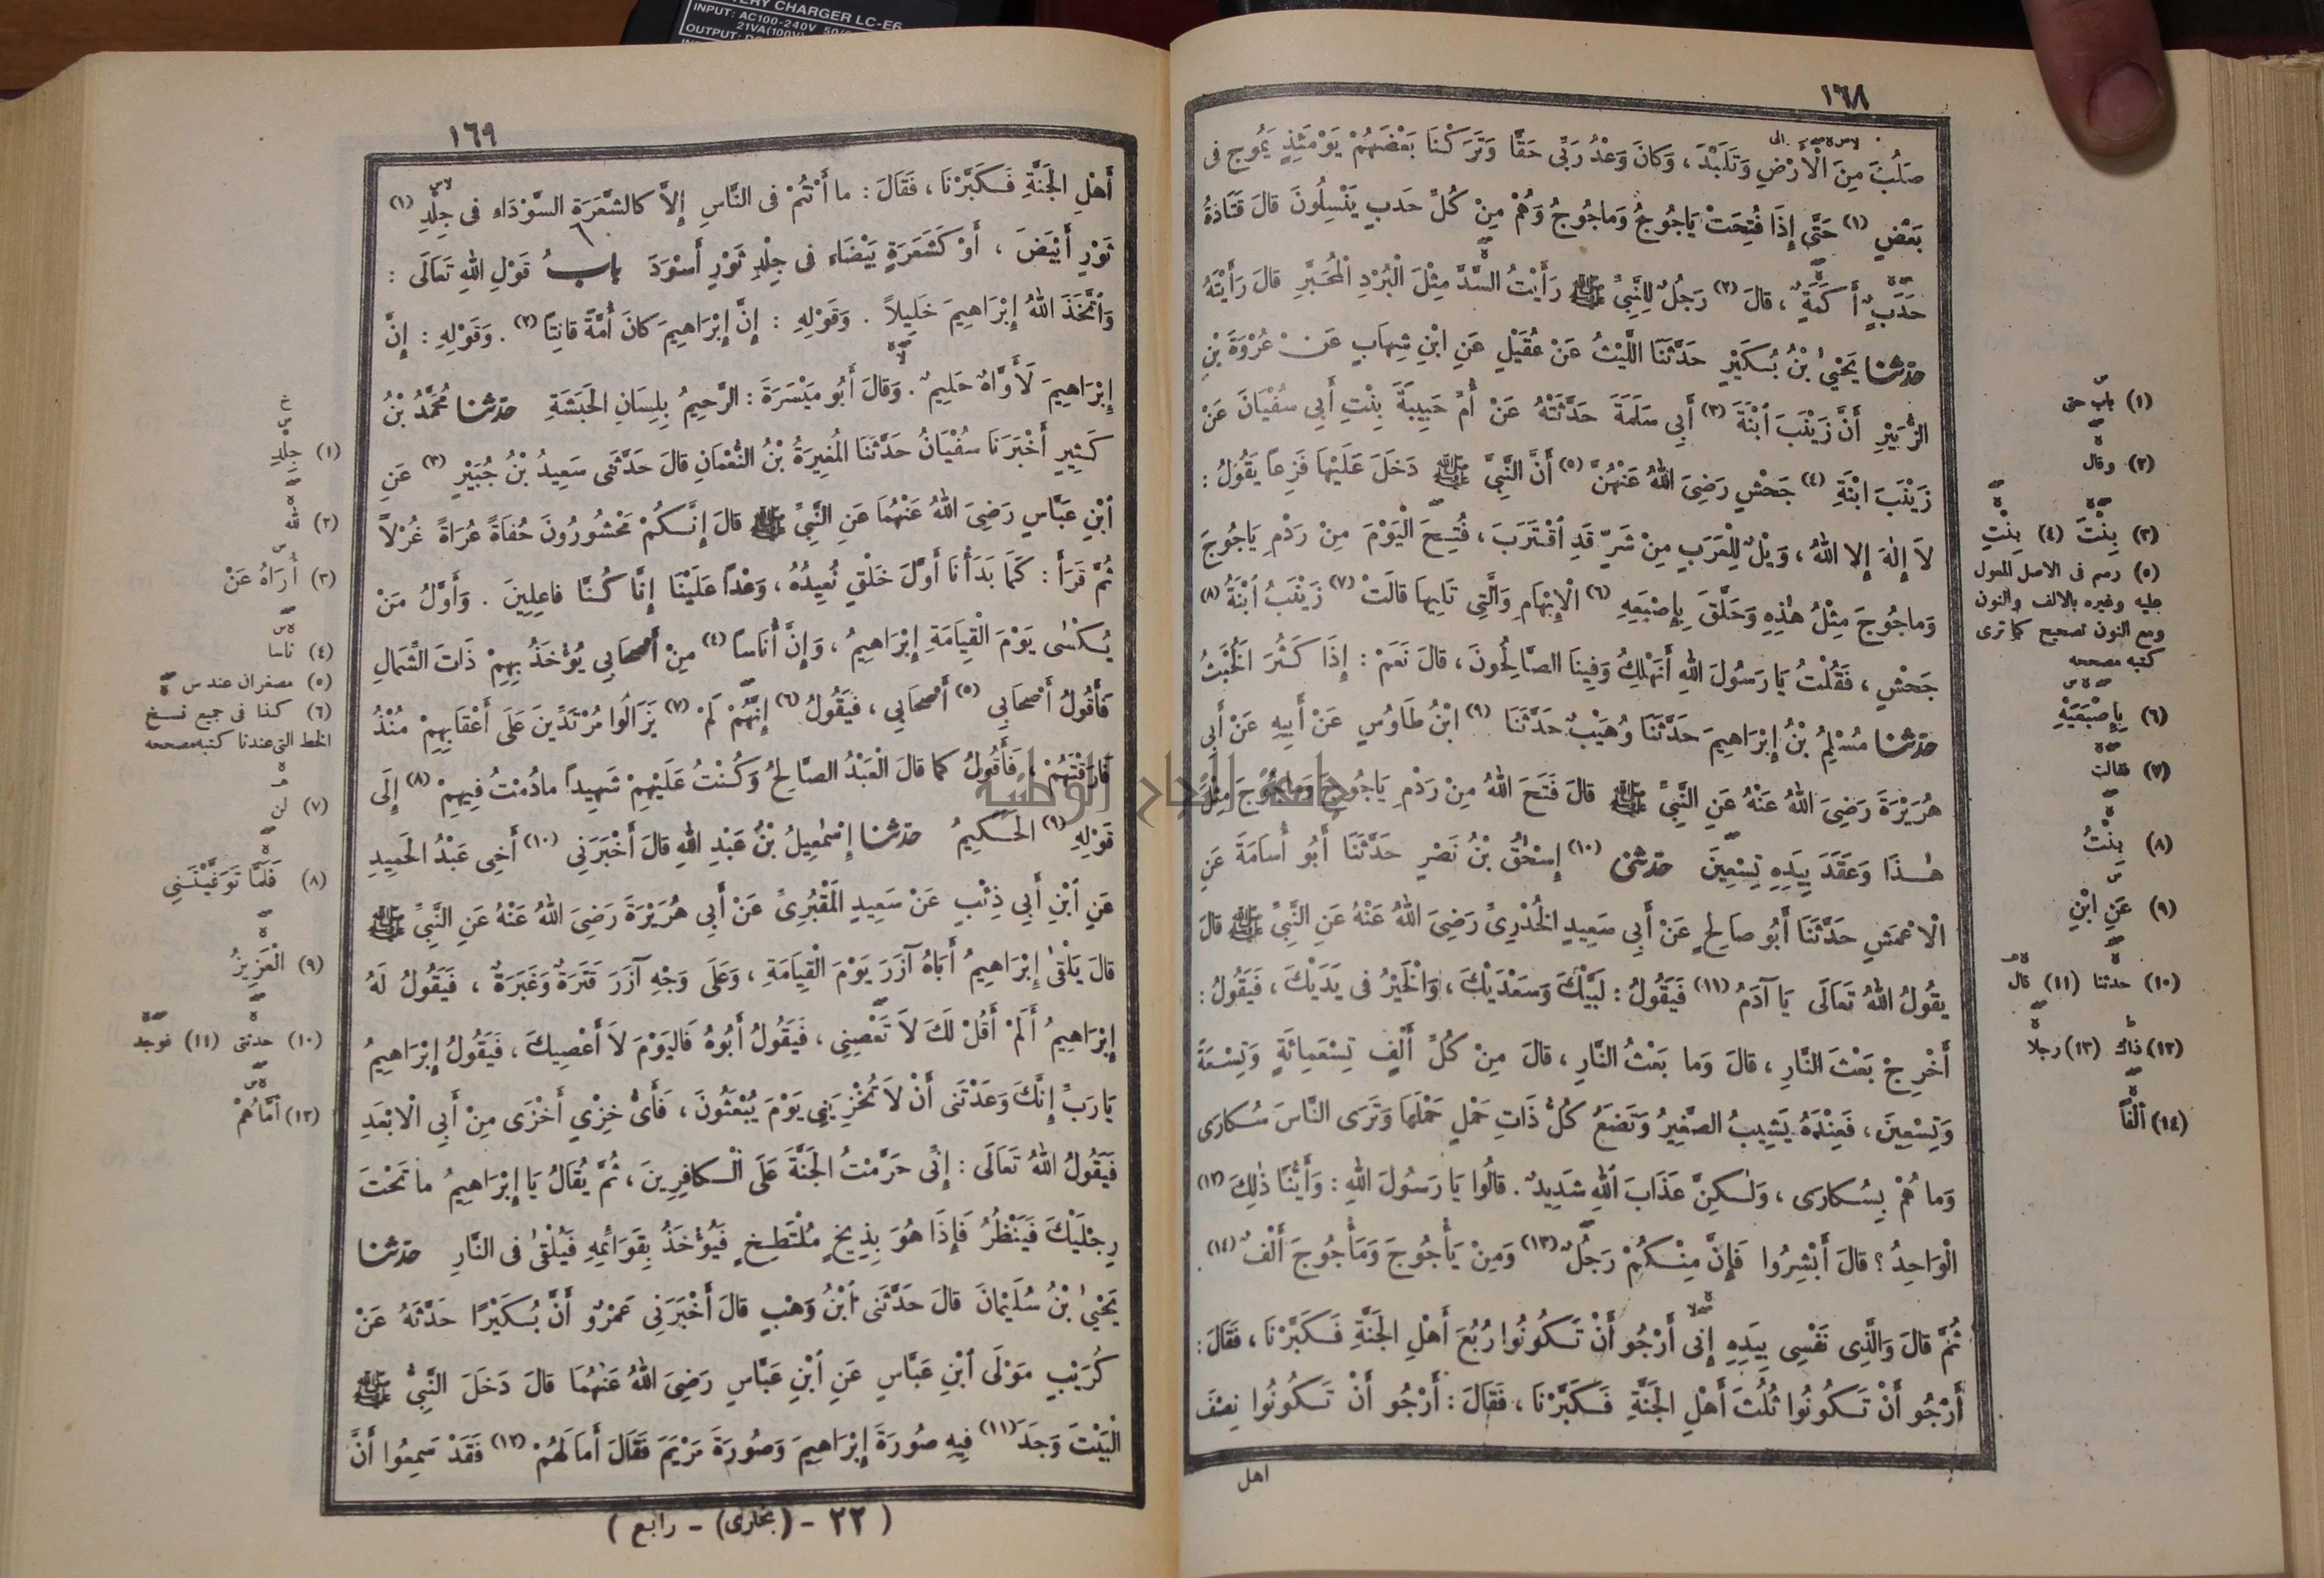 TERY CHARGER LC-E6
INPUT: AC100-240V 50/
21VA(100V)
OUTPUT: DC
١٦٨
صَلُبَ مِنَ الْأَرْضِ وَتَلَبَّدَ ، وَكَانَ وَعْدُ رَبِّى حَقًّا وَتَرَكْنَا بَعْضَهُمْ يَوْمَئِذٍ يَمُوجُ فى
بَعْضٍ (١) حَتَّى إِذَا فُتِحَتْ يَاجُوجُ وَمَاجُوجُ وَهُمْ مِنْ كُلِّ حَدَبٍ يَنْسِلُونَ قالَ قَتَادَةُ
حَدَبٌ أَكَمَةٌ ، قالَ (٢) رَجُلٌ لِلنَّبِىِّ ﷺ رَأَيْتُ السَّدَّ مِثْلَ الْبُرْدِ الْمُحَبَّرِ قالَ رَأَيْتَهُ
حدّثنا يَحْيى بْنُ بُكَيْرٍ حَدَّثَنَا اللَّيْثُ عَنْ عُقَيْلٍ عَنِ ابْنِ شِهَابٍ عَنْ عُرْوَةَ بْنِ
الزُّبَيْرِ أَنَّ زَيْنَبَ ابْنَةَ (٣) أَبِي سَلَمَةَ حَدَّثَتْهُ عَنْ أُمِّ حَبِيبَةَ بِنْتِ أَبِي سُفْيَانَ عَنْ
زَيْنَبَ ابْنَةِ (٤) جَحْشٍ رَضِىَ اللهُ عَنْهُنَّ (٥) أَنَّ النَّبِىَّ ﷺ دَخَلَ عَلَيْهَا فَزِعاً يَقُولُ :
لاَ إِلٰهَ إِلا اللهُ ، وَيْلٌ لِلْعَرَبِ مِنْ شَرٍّ قَدِ اقْتَرَبَ ، فُتِحَ الْيَوْمَ مِنْ رَدْمِ يَاجُوجَ
وَمَاجُوجَ مِثْلُ هٰذِهِ وَحَلَّقَ بِإِصْبَعِهِ (٦) الْإِبْهَامِ وَالَّتِى تَلِيهَا قالَتْ (٧) زَيْنَبُ ابْنَةُ (٨)
جَحْشٍ ، فَقُلْتُ يَا رَسُولَ اللهِ أَنَهْلِكُ وَفِينَا الصَّالِحُونَ ، قالَ نَعَمْ : إِذَا كَثُرَ الْخُبْثُ
حدّثنا مُسْلِمُ بْنُ إِبْرَاهِيمَ حَدَّثَنَا وُهَيْبٌ حَدَّثَنَا (٩) ابْنُ طَاوُسٍ عَنْ أَبِيهِ عَنْ أَبِى
هُرَيْرَةَ رَضِىَ اللهُ عَنْهُ عَنِ النَّبِىِّ ﷺ قالَ فَتَحَ اللهُ مِنْ رَدْمِ يَاجُوجَ وَمَاجُوجَ مِثْلَ
هٰذَا وَعَقَدَ بِيَدِهِ تِسْعِينَ حدّثنى (١٠) إِسْحٰقُ بْنُ نَصْرٍ حَدَّثَنَا أَبُو أُسَامَةَ عَنِ
الْأَعْمَشِ حَدَّثَنَا أَبُو صَالِحٍ عَنْ أَبِى سَعِيدٍ الْخُدْرِىِّ رَضِىَ اللهُ عَنْهُ عَنِ النَّبِىِّ ﷺ قالَ
يَقُولُ اللهُ تَعَالَى يَا آدَمُ (١١) فَيَقُولُ : لَبَّيْكَ وَسَعْدَيْكَ ، وَالْخَيْرُ فى يَدَيْكَ ، فَيَقُولُ :
أَخْرِجْ بَعْثَ النَّارِ ، قالَ وَما بَعْثُ النَّارِ ، قالَ مِنْ كُلِّ أَلْفٍ تِسْعَمِائَةٍ وَتِسْعَةً
وَتِسْعِينَ ، فَعِنْدَهُ يَشِيبُ الصَّغِيرُ وَتَضَعُ كُلُّ ذَاتِ حَمْلٍ حَمْلَهَا وَتَرَى النَّاسَ سُكارَى
وَما هُمْ بِسُكارَى ، وَلٰكِنَّ عَذَابَ اللهِ شَدِيدٌ . قالُوا يَا رَسُولَ اللهِ : وَأَيُّنَا ذٰلِكَ (١٢)
الْوَاحِدُ ؟ قالَ أَبْشِرُوا فَإِنَّ مِنْكُمْ رَجُلٌ (١٣) وَمِنْ يَأْجُوجَ وَمَأْجُوجَ أَلْفٌ (١٤) .
ثُمَّ قالَ وَالَّذِى نَفْسِى بِيَدِهِ إِنِّى أَرْجُو أَنْ تَكُونُوا رُبُعَ أَهْلِ الجَنَّةِ فَكَبَّرْنَا ، فَقَالَ :
أَرْجُو أَنْ تَكُونُوا ثُلُثَ أَهْلِ الجَنَّةِ فَكَبَّرْنَا ، فَقَالَ : أَرْجُو أَنْ تَكُونُوا نِصْفَ
اهل
(١) باب حتى
(٢) وقال
(٣) بِنْتَ (٤) بِنْتِ
(٥) رسم فى الاصل المعول
عليه وغيره بالالف والنون
ومع النون تصحيح كما ترى
كتبه مصححه
(٦) بِإِصْبَعَيْهِ
(٧) فقالت
(٨) بِنْتُ
(٩) عَنِ ابْنِ
(١٠) حدثنا (١١) قال
(١٢) ذاك (١٣) رجلا
(١٤) أَلْفاً
١٦٩
أَهْلِ الجَنَّةِ فَكَبَّرْنَا ، فَقَالَ : ما أَنْتُمْ فى النَّاسِ إِلاَّ كالشَّعَرَةِ السَّوْدَاءِ فى جِلْدِ (١)
ثَوْرٍ أَبْيَضَ ، أَوْ كَشَعَرَةٍ بَيْضَاءَ فى جِلْدِ ثَوْرٍ أَسْوَدَ بابُ قَوْلِ اللهِ تَعَالَى :
وَاتَّخَذَ اللهُ إِبْرَاهِيمَ خَلِيلاً . وَقَوْلِهِ : إِنَّ إِبْرَاهِيمَ كانَ أُمَّةً قانِتاً (٢) . وَقَوْلِهِ : إِنَّ
إِبْرَاهِيمَ لَأَوَّاهٌ حَلِيمٌ . وَقالَ أَبُو مَيْسَرَةَ : الرَّحِيمُ بِلِسَانِ الحَبَشَةِ حدّثنا مُحَمَّدُ بْنُ
كَثِيرٍ أَخْبَرَنَا سُفْيَانُ حَدَّثَنَا المُغِيرَةُ بْنُ النُّعْمَانِ قالَ حَدَّثَنِى سَعِيدُ بْنُ جُبَيْرٍ (٣) عَنِ
ابْنِ عَبَّاسٍ رَضِىَ اللهُ عَنْهُمَا عَنِ النَّبِىِّ ﷺ قالَ إِنَّكُمْ مَحْشُورُونَ حُفَاةً عُرَاةً غُرْلاً
ثُمَّ قَرَأَ : كَمَا بَدَأْنَا أَوَّلَ خَلْقٍ نُعِيدُهُ ، وَعْداً عَلَيْنَا إِنَّا كُنَّا فاعِلِينَ . وَأَوَّلُ مَنْ
يُكْسٰى يَوْمَ الْقِيَامَةِ إِبْرَاهِيمُ ، وَإِنَّ أُنَاساً (٤) مِنْ أَصْحَابِى يُؤْخَذُ بِهِمْ ذَاتَ الشِّمَالِ
فَأَقُولُ أَصْحَابِى (٥) أَصْحَابِى ، فَيَقُولُ (٦) إِنَّهُمْ لَمْ (٧) يَزَالُوا مُرْتَدِّينَ عَلَى أَعْقَابِهِمْ مُنْذُ
فَارَقْتَهُمْ ، فَأَقُولُ كما قالَ الْعَبْدُ الصَّالِحُ وَكُنْتُ عَلَيْهِمْ شَهِيداً مادُمْتُ فِيهِمْ (٨) إِلَى
قَوْلِهِ (٩) الحَكِيمُ حدّثنا إِسْمٰعِيلُ بْنُ عَبْدِ اللهِ قالَ أَخْبَرَنِى (١٠) أَخِى عَبْدُ الحَمِيدِ
عَنِ ابْنِ أَبِى ذِئْبٍ عَنْ سَعِيدٍ المَقْبُرِىِّ عَنْ أَبِى هُرَيْرَةَ رَضِىَ اللهُ عَنْهُ عَنِ النَّبِىِّ ﷺ
قالَ يَلْقٰى إِبْرَاهِيمُ أَبَاهُ آزَرَ يَوْمَ الْقِيَامَةِ ، وَعَلَى وَجْهِ آزَرَ قَتَرَةٌ وَغَبَرَةٌ ، فَيَقُولُ لَهُ
إِبْرَاهِيمُ أَلَمْ أَقُلْ لَكَ لاَ تَعْصِنِى ، فَيَقُولُ أَبُوهُ فَالْيَوْمَ لاَ أَعْصِيكَ ، فَيَقُولُ إِبْرَاهِيمُ
يَا رَبِّ إِنَّكَ وَعَدْتَنِى أَنْ لاَ تُخْزِيَنِى يَوْمَ يُبْعَثُونَ ، فَأَىُّ خِزْىٍ أَخْزَى مِنْ أَبِى الْأَبْعَدِ
فَيَقُولُ اللهُ تَعَالَى : إِنِّى حَرَّمْتُ الجَنَّةَ عَلَى الْكافِرِينَ ، ثُمَّ يُقَالُ يَا إِبْرَاهِيمُ ما تَحْتَ
رِجْلَيْكَ فَيَنْظُرُ فَإِذَا هُوَ بِذِيخٍ مُلْتَطِخٍ فَيُؤْخَذُ بِقَوَائِمِهِ فَيُلْقٰى فى النَّارِ حدّثنا
يَحْيٰى بْنُ سُلَيْمَانَ قالَ حَدَّثَنِى ابْنُ وَهْبٍ قالَ أَخْبَرَنِى عَمْرٌو أَنَّ بُكَيْرًا حَدَّثَهُ عَنْ
كُرَيْبٍ مَوْلَى ابْنِ عَبَّاسٍ عَنِ ابْنِ عَبَّاسٍ رَضِىَ اللهُ عَنْهُمَا قالَ دَخَلَ النَّبِىُّ ﷺ
الْبَيْتَ وَجَدَ (١١) فِيهِ صُورَةَ إِبْرَاهِيمَ وَصُورَةَ مَرْيَمَ فَقَالَ أَمَا لَهُمْ (١٢) فَقَدْ سَمِعُوا أَنَّ
( ٢٢ - (بخارى) - رابع )
(١) جِلْدِ
(٢) لله
(٣) أُرَاهُ عَنْ
(٤) ناسا
(٥) مصغران عند س
(٦) كذا فى جميع نسخ
الخط التى عندنا كتبه مصححه
(٧) لن
(٨) فَلَمَّا تَوَفَّيْتَنِى
(٩) الْعَزِيزُ
(١٠) حدثنى (١١) فوجد
(١٢) أَمَّاهُمْ
جامعة النجاح الوطنية